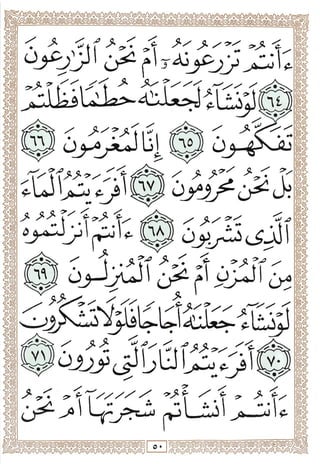 ءَأَنتُمْ تَزْرَعُونَهُۥٓ أَمْ نَحْنُ ٱلزَّٰرِعُونَ
٦٤ لَوْ نَشَآءُ لَجَعَلْنَٰهُ حُطَٰمًا فَظَلْتُمْ
تَفَكَّهُونَ ٦٥ إِنَّا لَمُغْرَمُونَ ٦٦
بَلْ نَحْنُ مَحْرُومُونَ ٦٧ أَفَرَءَيْتُمُ ٱلْمَآءَ
ٱلَّذِى تَشْرَبُونَ ٦٨ ءَأَنتُمْ أَنزَلْتُمُوهُ
مِنَ ٱلْمُزْنِ أَمْ نَحْنُ ٱلْمُنزِلُونَ ٦٩
لَوْ نَشَآءُ جَعَلْنَٰهُ أُجَاجًا فَلَوْلَا تَشْكُرُونَ
٧٠ أَفَرَءَيْتُمُ ٱلنَّارَ ٱلَّتِى تُورُونَ ٧١
ءَأَنتُمْ أَنشَأْتُمْ شَجَرَتَهَآ أَمْ نَحْنُ
٥٠